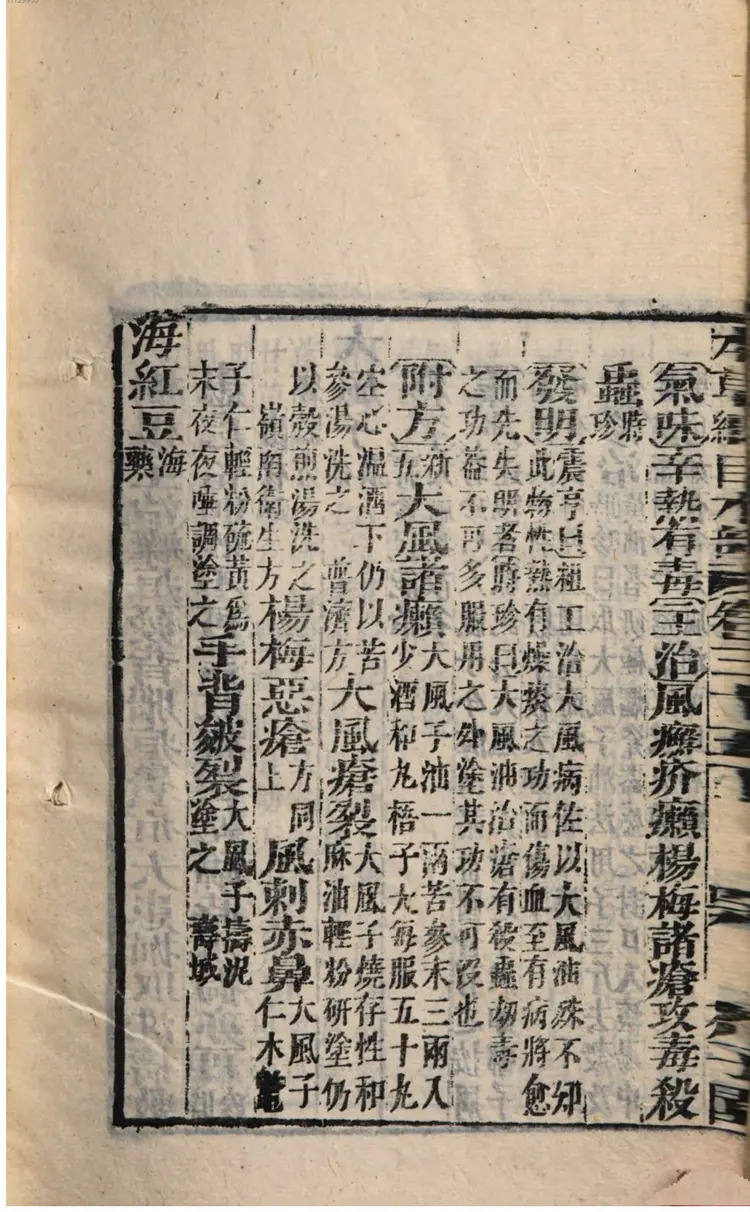 本草綱目木部
氣味辛熱有毒主治風癬疥癩楊梅諸瘡攻毒殺
蟲時珍
發明震亨曰粗工治大風病佐以大風油殊不知
此物性熱有燥痰之功而傷血至有病將愈
而先失明者時珍曰大風油治瘡有殺蟲劫毒
之功蓋不可多服用之外塗其功不可沒也
附方新五大風諸癩大風子油一兩苦參末三兩入
少酒和丸梧子大每服五十丸
空心温酒下仍以苦
參湯洗之 普濟方大風瘡裂大風子燒存性和
麻油輕粉研塗仍
以殼煎湯洗之
嶺南衛生方楊梅惡瘡方同上風刺赤鼻大風子
仁木鱉
子仁輕粉硫黃爲
末夜夜唾調塗之手背皴裂大風子擣泥
塗之 壽域
海紅豆海藥